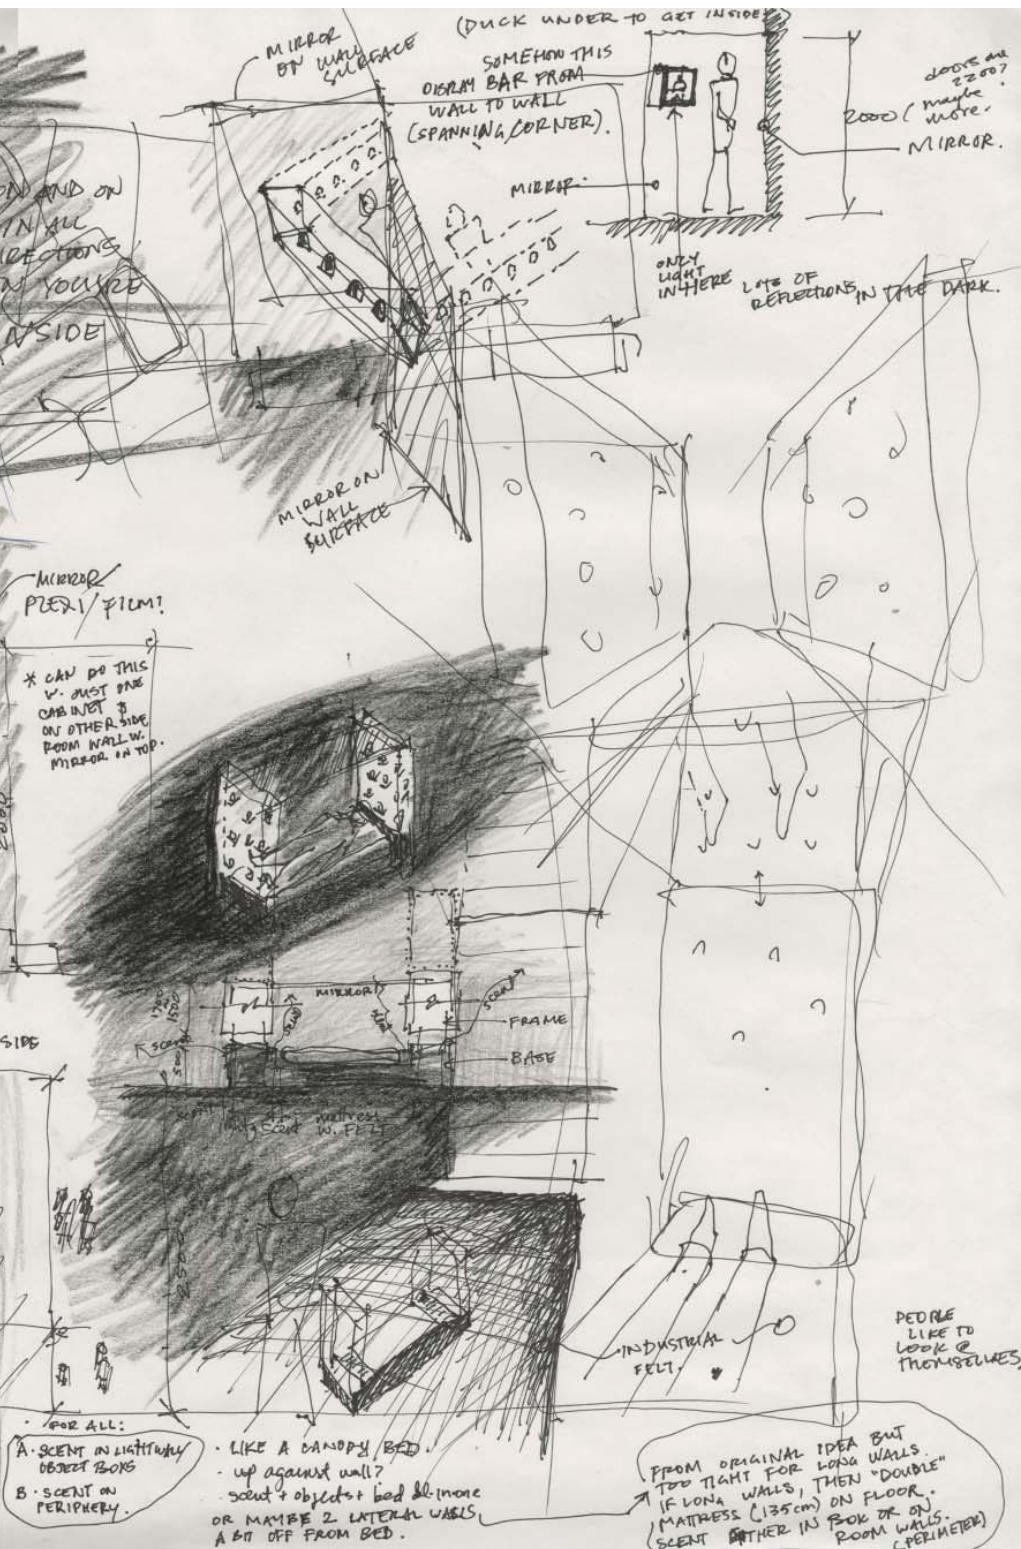 (DUCK UNDER TO GET INSIDE)
MIRROR
ON WALL
SURFACE
SOMEHOW THIS
DISPLAY BAR FROM
WALL TO WALL
(SPANNING CORNER).
doors are
2200?
maybe
more.
2000
MIRROR.
MIRROR.
ON AND ON
IN ALL
DIRECTIONS
YOU'RE
INSIDE
ONLY
LIGHT
IN HERE
LOTS OF
REFLECTIONS IN THE DARK.
MIRROR ON
WALL
SURFACE
MIRROR/
PLEXI/FILM?
* CAN DO THIS
W. JUST ONE
CABINET &
ON OTHER SIDE
ROOM WALL W.
MIRROR ON TOP.
MIRROR
SCENT
SCENT
1700
1500
FRAME
SIDE
SCENT
500
BASE
mattress
scent W. FELT
2500
INDUSTRIAL
FELT.
PEOPLE
LIKE TO
LOOK @
THEMSELVES
FOR ALL:
A. SCENT IN LIGHT WALL/
OBJECT BOXS
B. SCENT ON
PERIPHERY.
· LIKE A CANOPY BED.
- up against wall?
- scent + objects + bed all-in-one
OR MAYBE 2 LATERAL WALLS
A BIT OFF FROM BED.
FROM ORIGINAL IDEA BUT
TOO TIGHT FOR LONG WALLS.
IF LONG WALLS, THEN "DOUBLE"
MATTRESS (135cm) ON FLOOR.
SCENT EITHER IN BOX OR ON
ROOM WALLS.
(PERIMETER)